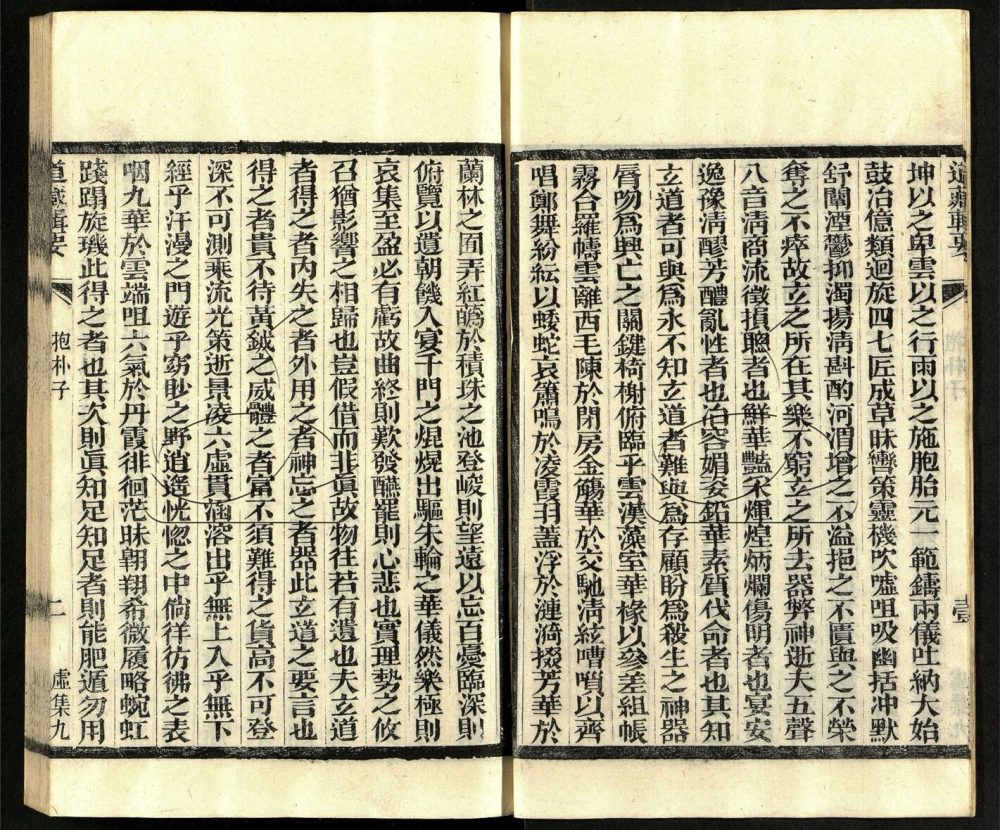 道藏輯要
坤以之卑雲以之行雨以之施胞胎元一範鑄兩儀吐納大始
鼓冶億類迴旋四七匠成草昧轡策靈機吹噓咀吸幽括沖默
舒闡湮鬱抑濁揚淸斟酌河渭增之不溢挹之不匱與之不榮
奪之不瘁故玄之所在其樂不窮玄之所去器弊神逝夫五聲
八音淸商流徵損聰者也鮮華豔采煇煌炳爛傷明者也宴安
逸豫淸醪芳醴亂性者也冶容媚姿鉛華素質伐命者也其知
玄道者可與爲永不知玄道者難與爲存顧盼爲殺生之神器
脣吻爲興亡之關鍵椅榭俯臨乎雲漢藻室華椽以參差組帳
霧合羅幬雲離西毛陳於閉房金觴華於交馳淸絃嘈囋以齊
唱鄭舞紛紜以蜲蛇哀簫鳴於凌霞羽蓋浮於漣漪掇芳華於
蘭林之囿弄紅蘤於積珠之池登峻則望遠以忘百憂臨深則
俯覽以遺朝饑入宴千門之焜熀出驅朱輪之華儀然樂極則
哀集至盈必有虧故曲終則歎發醼罷則心悲也實理勢之攸
召猶影響之相歸也豈假借而非眞故物往若有遺也夫玄道
者得之者內失之者外用之者神忘之者器此玄道之要言也
得之者貴不待黃鉞之威體之者富不須難得之貨高不可登
深不可測乘流光策逝景凌六虛貫涵溶出乎無上入乎無下
經乎汗漫之門遊乎窈眇之野逍遙恍惚之中倘佯彷彿之表
咽九華於雲端咀六氣於丹霞徘徊茫昧翱翔希微履略蜿虹
踐蹋旋璣此得之者也其次則眞知足知足者則能肥遁勿用
道藏輯要
抱朴子
二
虛集九